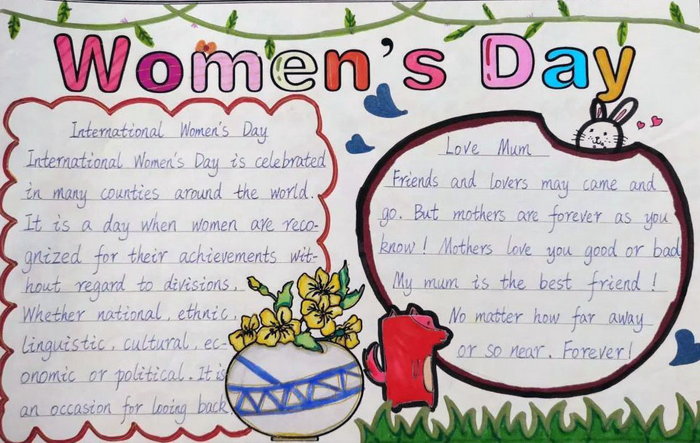 Women's Day
International Women's Day
International Women's Day is celebrated
in many counties around the world.
It is a day when women are reco-
gnized for their achievements wit-
hout regard to divisions,
Whether national, ethnic,
linguistic, cultural, ec-
onomic or political. It is
an occasion for looing back
Love Mum
Friends and lovers may came and
go. But mothers are forever as you
know! Mothers love you good or bad
My mum is the best friend!
No matter how far away
or so near. Forever!